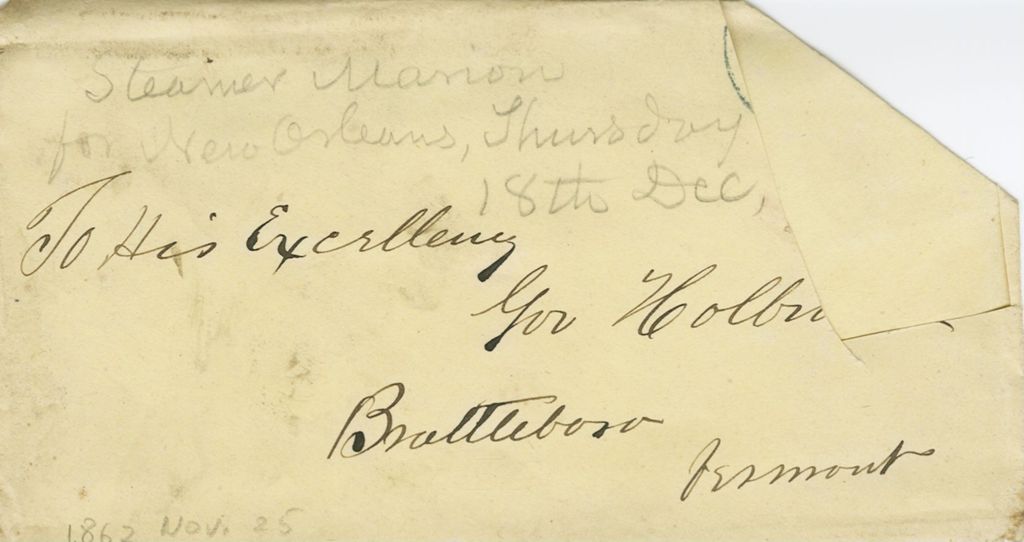 Steamer Marion
for New Orleans, Thursday
18th Dec,
To His Excellency
Gov Holbr
Brattleboro
Vermont
1862 Nov. 25